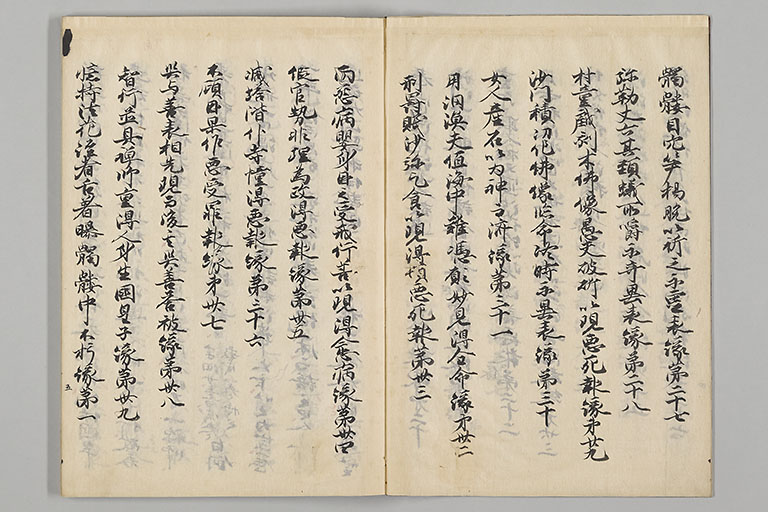 髑髏目穴笋掲脱以祈之示霊表縁第二十七
弥勒丈六其頸蟻所嚼示奇異表縁第二十八
村童戯刻木佛像愚夫破斫以現悪死報縁第廿九
沙門積功作佛像臨命終時示異表縁第三十
女人産石以為神而斎縁第三十一
用網漁夫値海中難憑願妙見得全命縁第卅二
刑罸賤沙弥乞食以現得頓悪死報第卅三
怨病嬰身因之受戒行善以現得愈病縁第卅四
仮官勢非理為政得悪報縁第卅五
減塔階仆寺幢得悪報縁第三十六
不顧因果作悪受罪報縁第卅七
災与善表相先現而後其災善答被縁第卅八
智行並具禅師重得人身生國皇子縁第卅九
憶持法花経者舌著曝髑髏中不朽縁第一
五